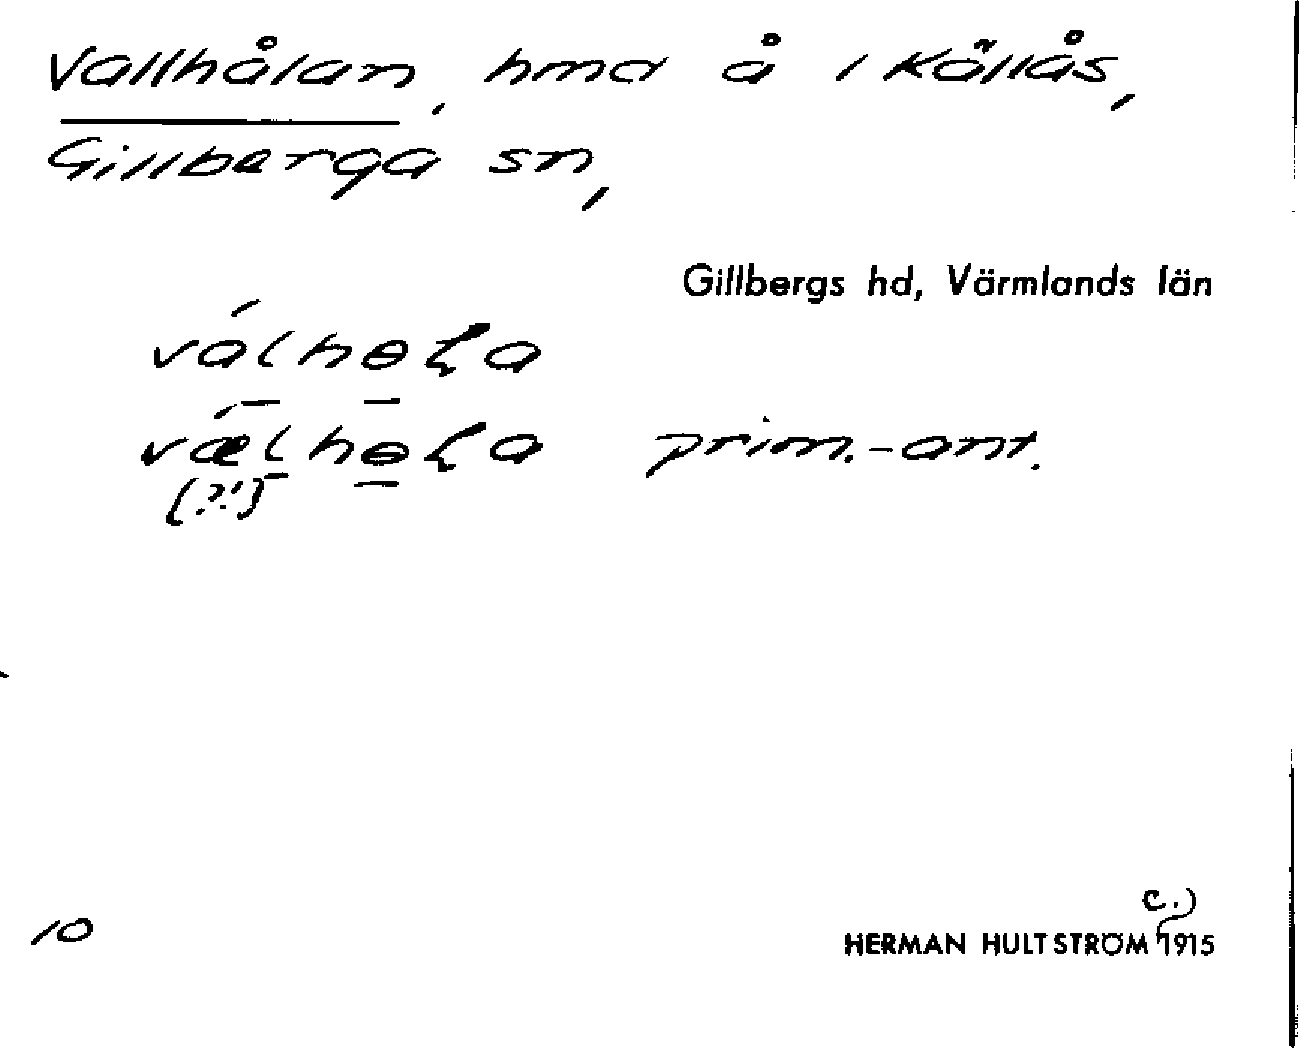 Vallhålan, hmd å i Källås,
Gillberga sn,
Gillbergs hd, Värmlands län
válhɵⱡa
vǽlhɵⱡa prim.-ant.
[?!]
10
c.)
HERMAN HULTSTRÖM 1915